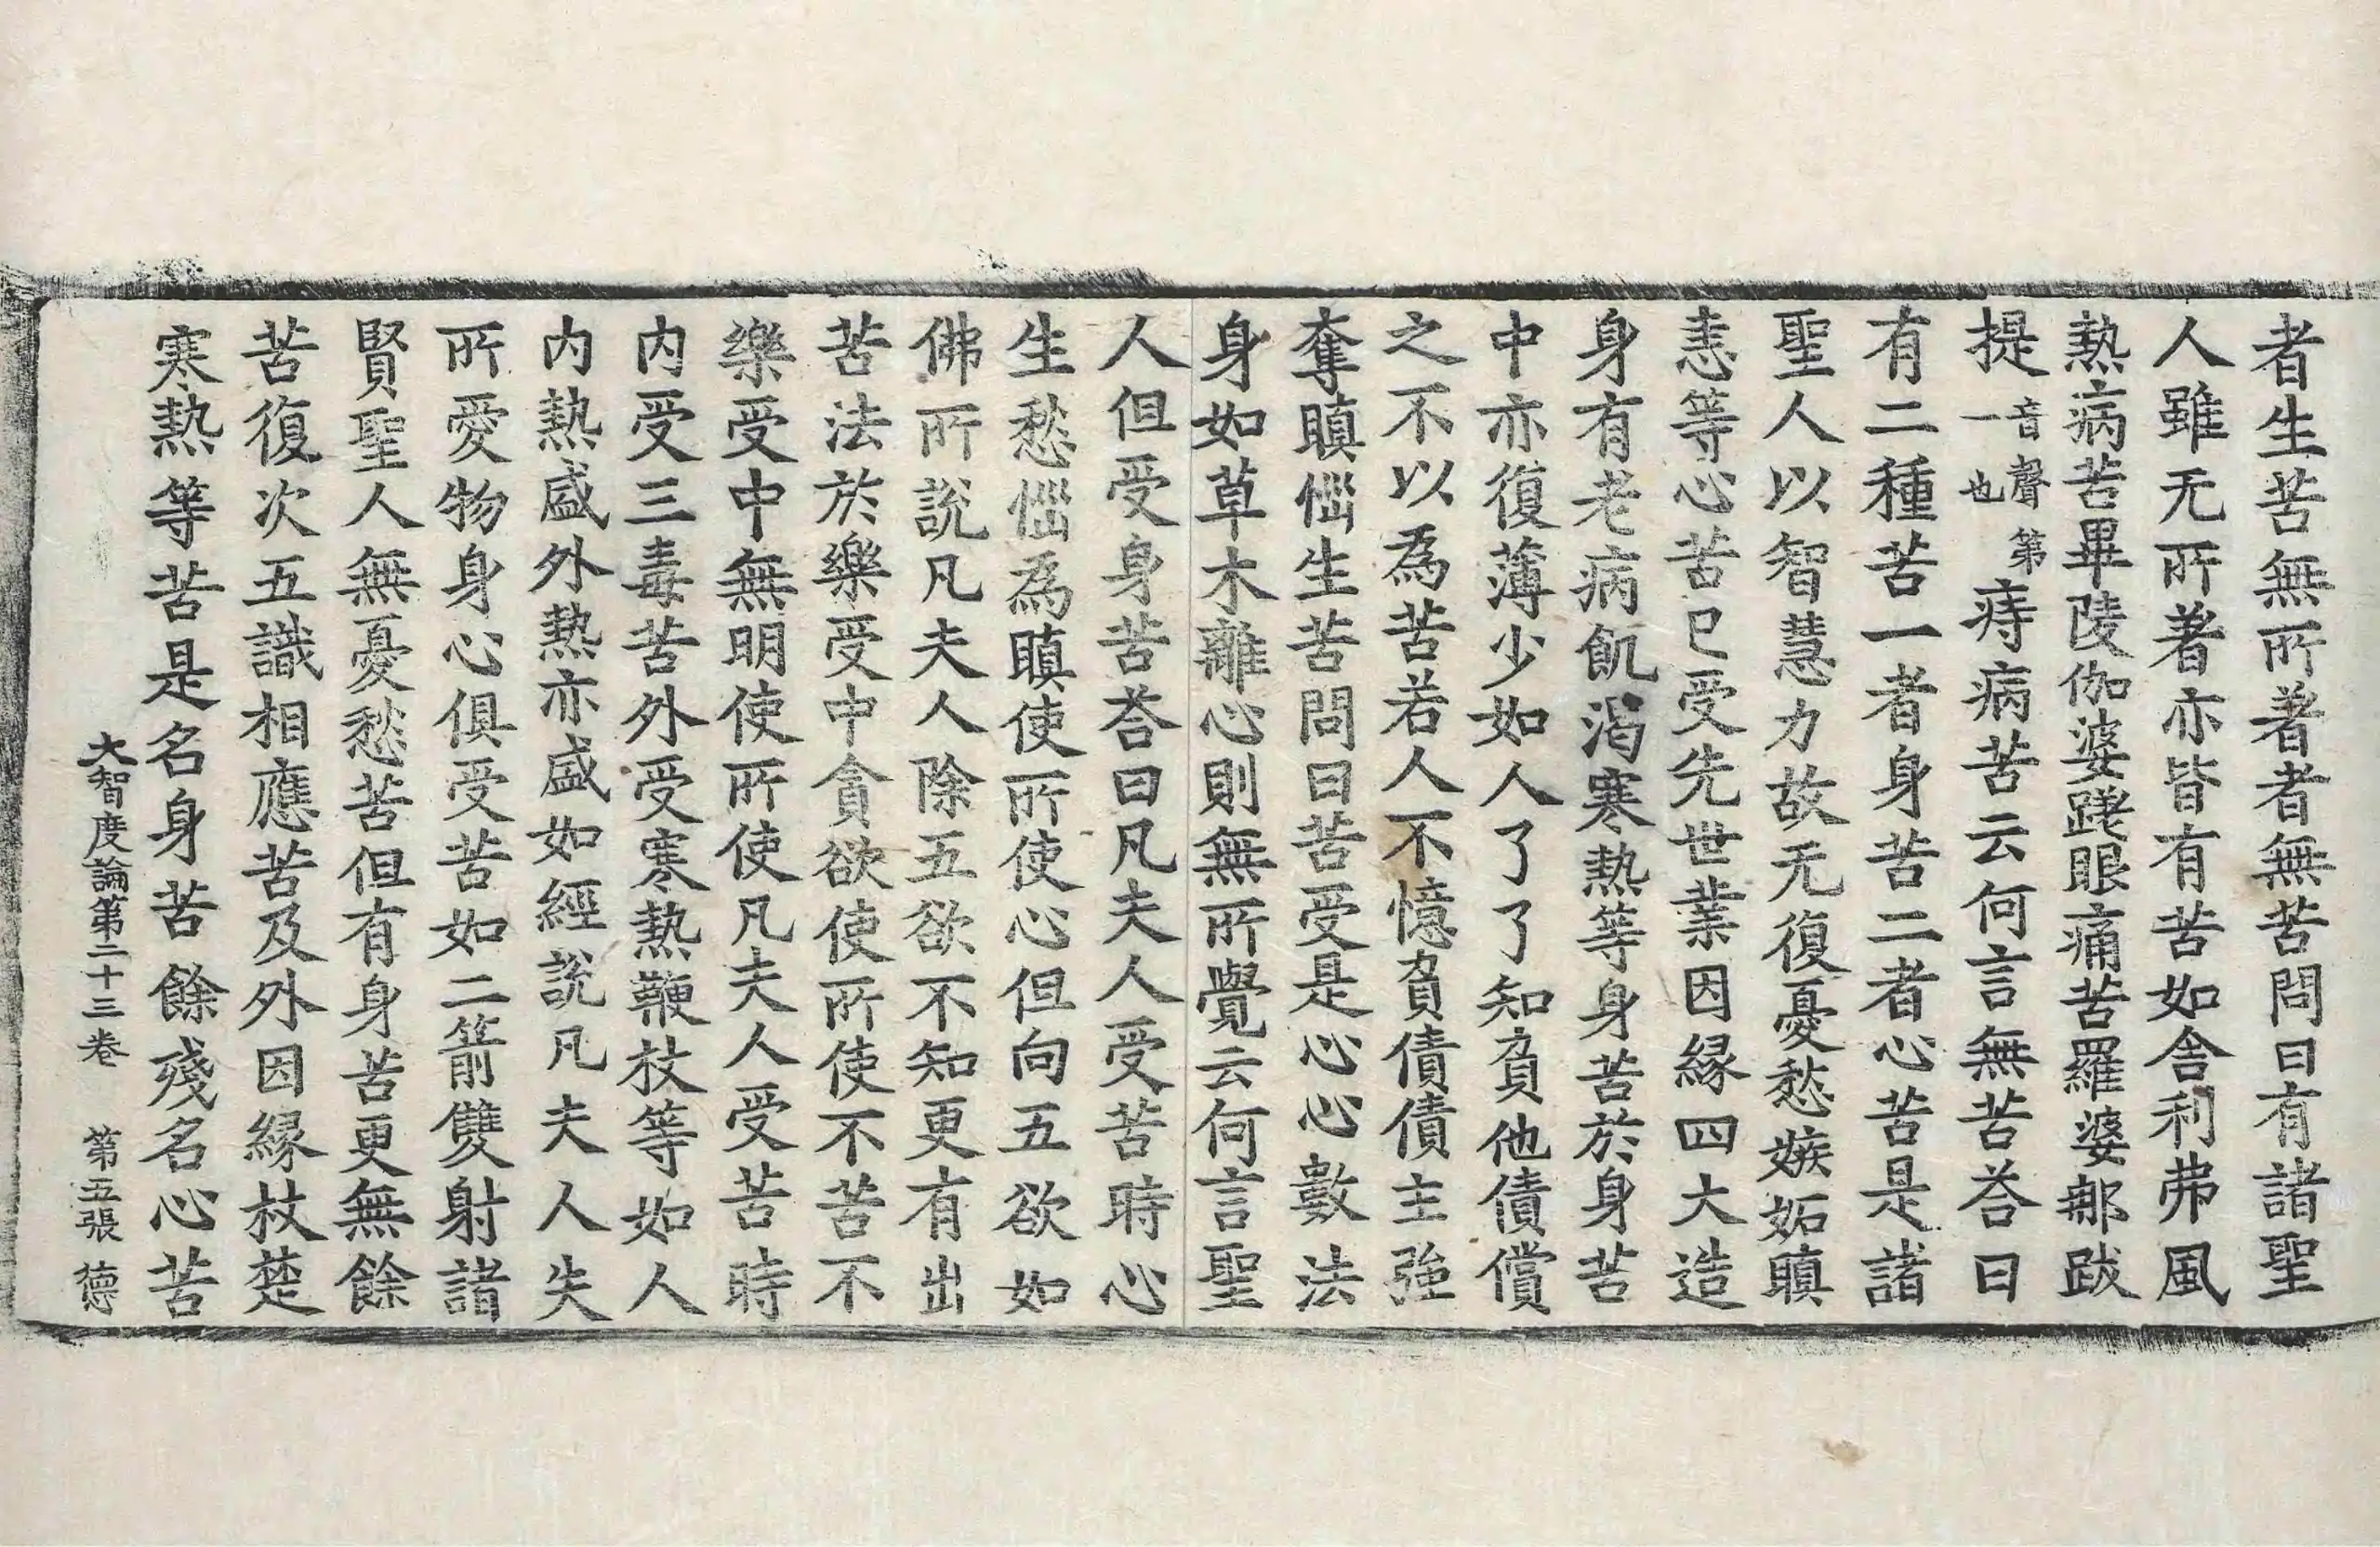 者生苦無所著者無苦問曰有諸聖
人雖无所著亦皆有苦如舍利弗風
熱病苦畢陵伽婆蹉眼痛苦羅婆那跋
提音聲第一也痔病苦云何言無苦荅曰
有二種苦一者身苦二者心苦是諸
聖人以智慧力故无復憂愁嫉妬瞋
恚等心苦已受先世業因緣四大造
身有老病飢渴寒熱等身苦於身苦
中亦復薄少如人了了知負他債償
之不以為苦若人不憶負債債主強
奪瞋惱生苦問曰苦受是心心數法
身如草木離心則無所覺云何言聖
人但受身苦荅曰凡夫人受苦時心
生愁惱為瞋使所使心但向五欲如
佛所說凡夫人除五欲不知更有出
苦法於樂受中貪欲使所使不苦不
樂受中無明使所使凡夫人受苦時
内受三毒苦外受寒熱鞭杖等如人
内熱盛外熱亦盛如經說凡夫人失
所愛物身心俱受苦如二箭雙射諸
賢聖人無憂愁苦但有身苦更無餘
苦復次五識相應苦及外因緣杖楚
寒熱等苦是名身苦餘殘名心苦
大智度論第二十三卷 第五張 德